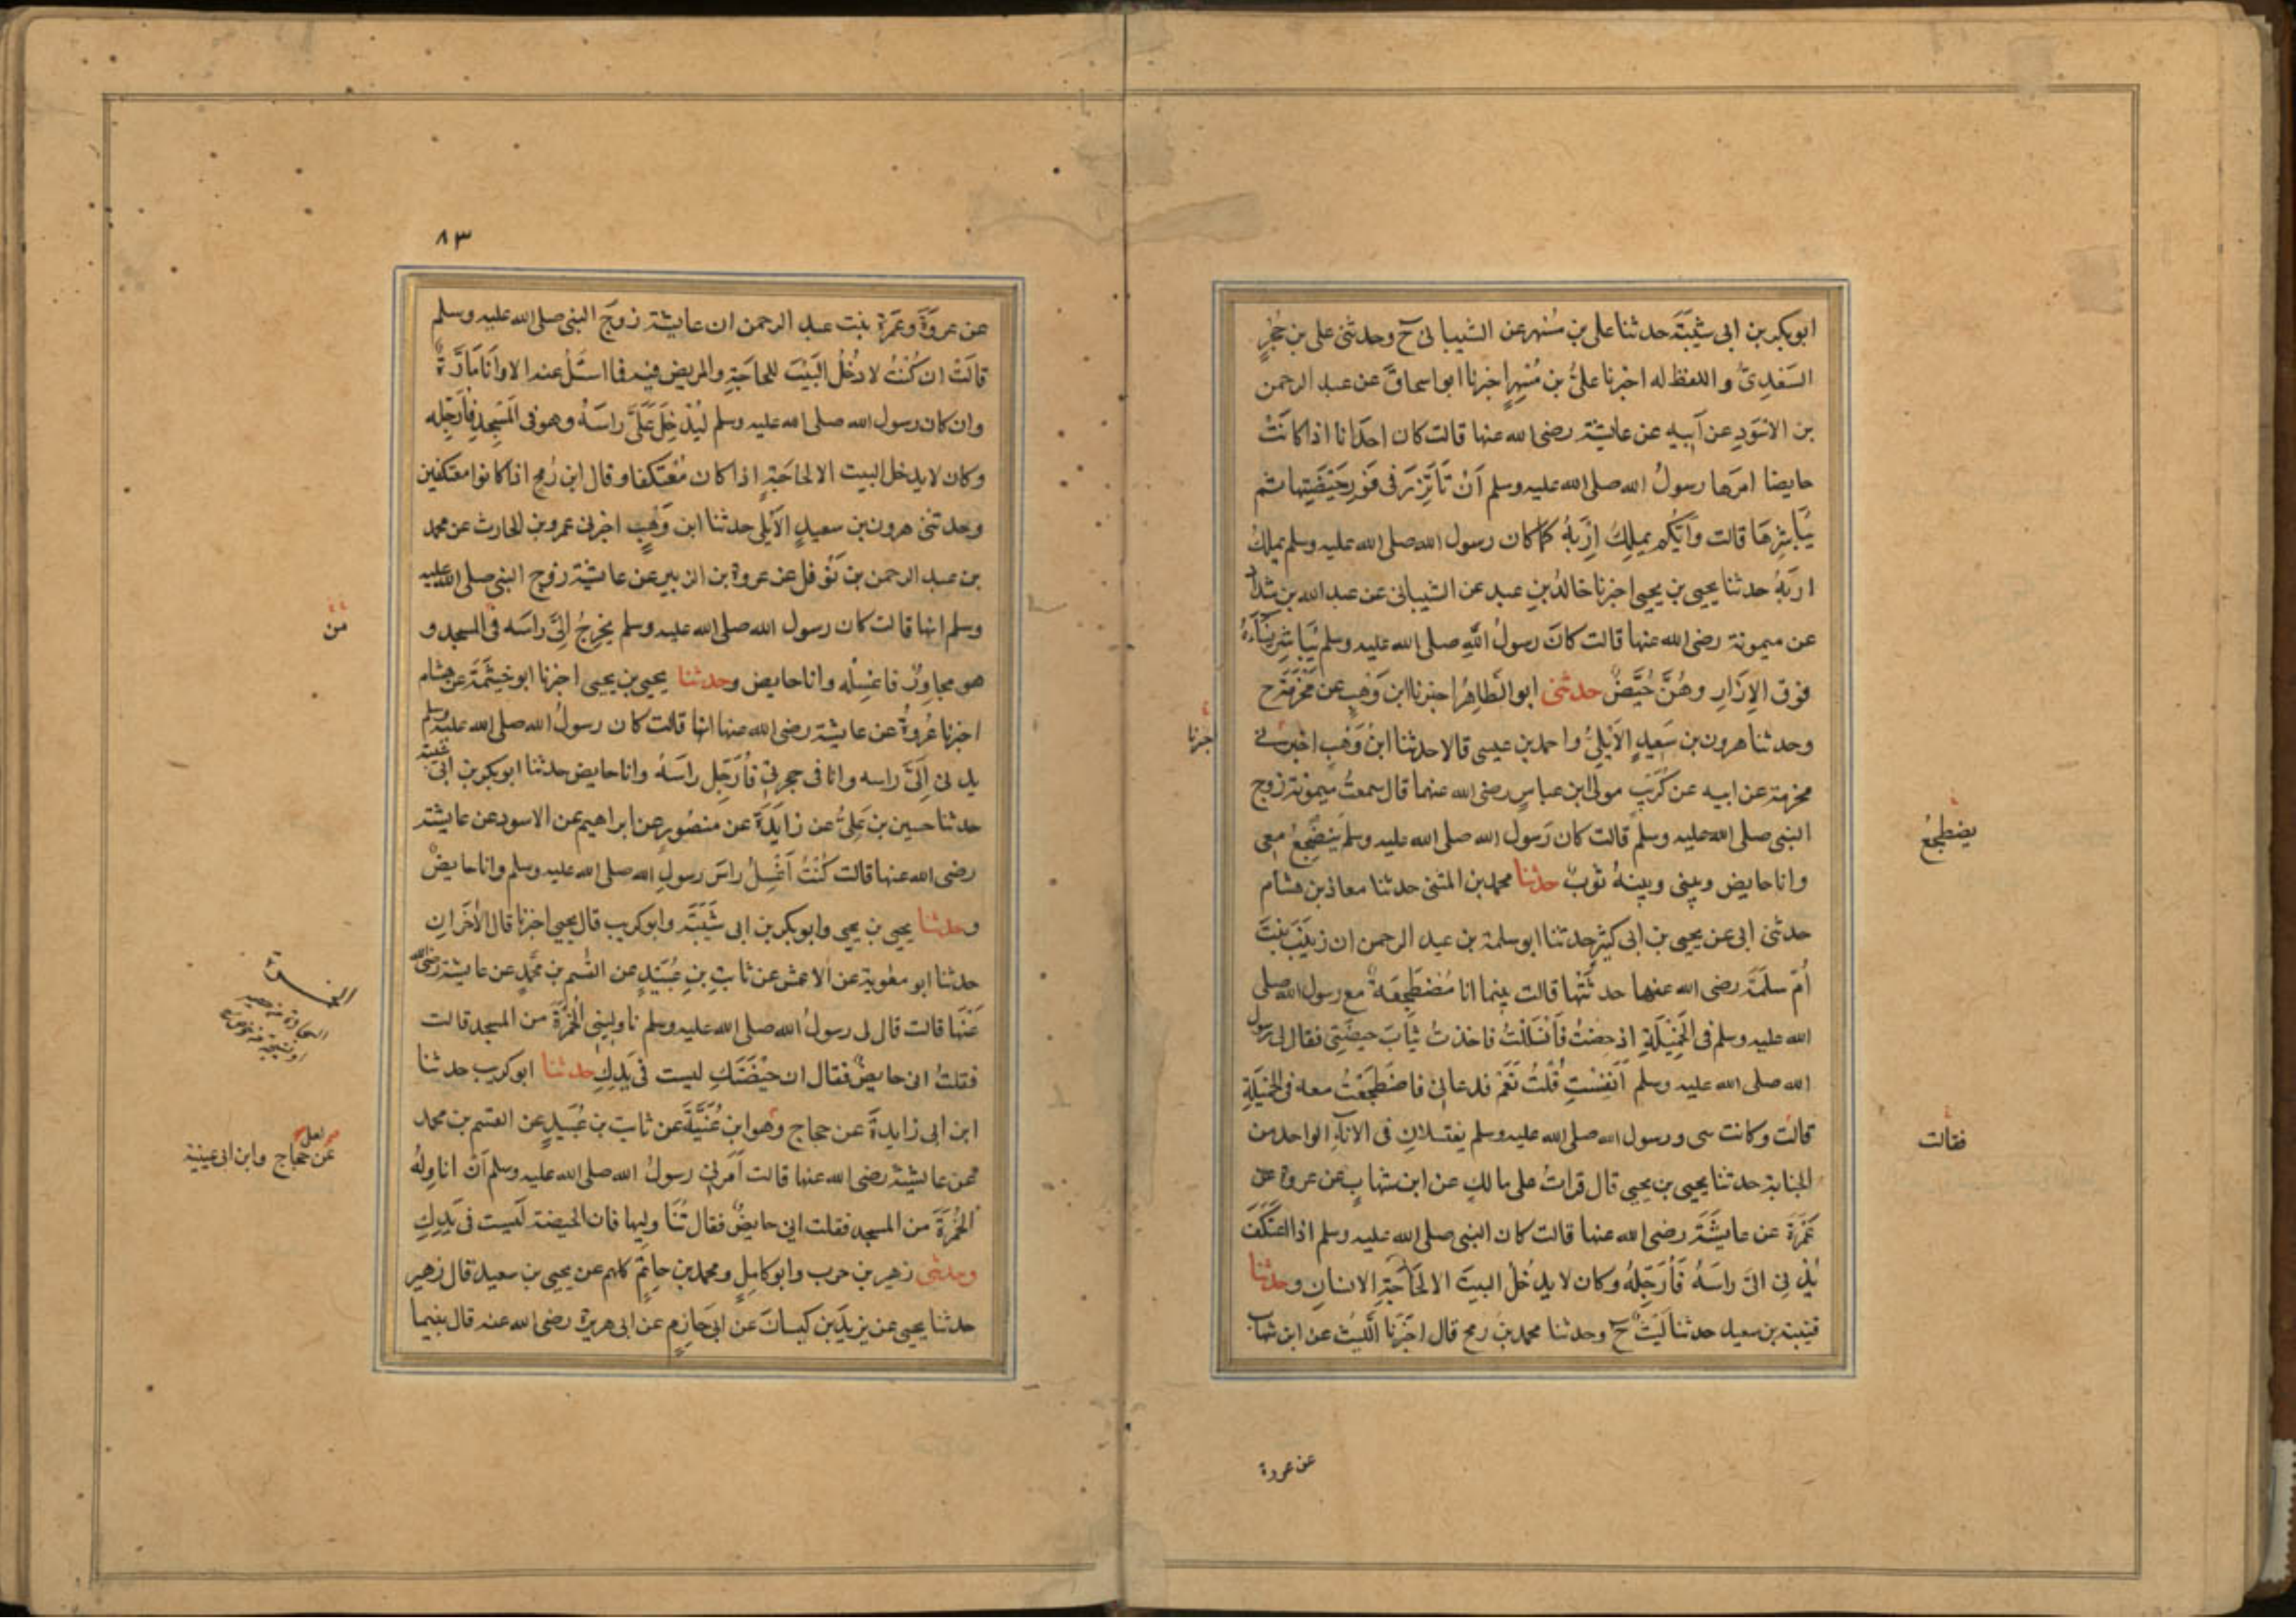 ابوبكر بن ابى شَيْبَةَ حدثنا على بن مُسْهر عن الشيبانى ح وحدثنى على بن حُجْرٍ
السَعْدِىّ واللفظ له اخبرنا علىُّ بن مُسْهِرٍ اخبرنا ابو اسحاقَ عن عبد الرحمن
بن الاسْوَدِ عن اَبيهِ عن عايشة رضى الله عنها قالت كان احدَانا اذا كانَتْ
حايضا امرَها رسولُ الله صلى الله عليه وسلم اَنْ تَأتَزِرَ فى فَوْرِ حَيْضَتِها ثم
يُبَاشِرُهَا قالت وَاَيُّكُم يملِكُ اِرْبَهُ كما كان رسول الله صلى الله عليه وسلم يملِكُ
ارْبَهُ حدثنا يحيى بن يحيى اخبرنا خالدُ بنِ عبد عن الشيبانى عن عبد الله بن شدّاد
عن ميمونة رضى الله عنها قالت كانَ رسولُ اللهِ صلى الله عليه وسلم يُبَاشِرُ نِسَآءَهُ
فوق الاِزَارِ وهُنَّ حُيَّضٌ حدثنى ابو الطَاهِرُ اخبرنا ابن وَهْبٍ عن مَخْرَمَةَ ح
وحدثنا هرون بن سَعِيدٍ الاَيْلِىُّ واحمد بن عيسى قالا حدثنا ابنُ وَهْبٍ اخبرنى
مخرمة عن ابيه عن كُرَيْبٍ مولى ابن عباسٍ رضى الله عنهما قال سمعتُ مَيمونة زوج
النبى صلى الله عليه وسلم قالت كان رَسول الله صلى الله عليه وسلم يَنضَجِعُ معى
وانا حايض وبينى وبينهُ ثوبٌ حدثنا محمد بن المثنى حدثنا معاذ بن هشام
حدثنى ابى عن يحيى بن ابى كثير حدثنا ابو سلمة بن عبد الرحمن ان زَيْنَبَ بِنْتَ
اُمّ سلَمَةَ رضى الله عنها حدثَتْها قالت بينما انا مُضْطَجِعَةٌ مع رسول الله صلى
الله عليه وسلم فى الخَمِيْلَةِ اذ حِضْتُ فَانْسَلَلْتُ فاخذتُ ثيابَ حيضَتِى فقال لى رسول
الله صلى الله عليه وسلم اَنَفِسْتِ قُلْتُ نَعَمْ فدعانى فاضطَجَعْتُ معه فى الخَمِيْلَةِ
قالت وكانت سى ورسول الله صلى الله عليه وسلم يغتسلانِ فى الانآءِ الواحد من
الجنابة حدثنا يحيى بن يحيى قال قراتُ على مالكٍ عن ابن شهابٍ عن عروة عن
عَمْرَةَ عن عايشَةَ رضى الله عنها قالت كان النبى صلى الله عليه وسلم اذا اعتكَفَ
يُدْنِى اِلىَّ راسَهُ فَاُرَجِّلُهُ وكان لا يدْخُلُ البيتَ الا لحَاجَةِ الانسانِ وحدثنا
قتيبة بن سعيد حدثنا لَيْثٌ ح وحدثنا محمد بن رمح قال اخبَرنا الليْث عن ابن شهاب
اخبرنا
يضطجعُ
فقالت
عن عروة
٨٣
عن عروَةَ وعَمْرَةَ بنت عبد الرحمن ان عايشة زوجَ النبى صلى الله عليه وسلم
قالَتْ ان كُنْتُ لادْخُلُ البَيْتَ للحاجَةِ والمريض فيه فما اسْئَلُ عنه الا وانَا مَارَّةٌ
وان كان رسول الله صلى الله عليه وسلم ليُدْخِلُ عَلَىَّ راسَهُ وهو فى المَسْجِدِ فاُرَجِّله
وكان لا يدخل البيت الا لحاجَةٍ اذا كان مُعْتَكفا وقال ابن رُمح اذا كانوا معتكفين
وحدثنى هرون بن سعيدٍ الاَيلى حدثنا ابن وَهْبٍ اخبرنى عمرو بن الحارث عن محمد
بن عبد الرحمن بن نَوْفل عن عروة بن الزبير عن عايشة زوج النبى صلى الله عليه
وسلم انها قالت كان رسول الله صلى الله عليه وسلم يخرِجُ اِلىَّ راسَه فى المسجد و
هو مجاوِرٌ فاغسِلُه وانا حايض وحدثنا يحيى بن يحيى اخبرنا ابو خيثَمَةَ عن هشام
اخبرنا عُروةُ عن عايشة رضى الله عنها انها قالت كان رسولُ الله صلى الله عليه وسلم
يدنى اِلَىَّ راسه وانا فى حجرتى فاُرَجِّل راسَهُ وانا حايض حدثنا ابوبكر بن ابى شيبة
حدثنا حسين بن عَلِىُّ عن زايدَةَ عن منصُورٍ عن ابراهيم عن الاسود عن عايشة
رضى الله عنها قالت كُنْتُ اَغْسِلُ راسَ رسولِ الله صلى الله عليه وسلم وانا حايضٌ
وحدثنا يحيى بن يحيى وابوبكر بن ابى شَيْبَةَ وابو كريب قال يحيى اخبرنا قال الاخَرانِ
حدثنا ابو معٰوية عن الاعمش عن ثابِتِ بنِ عُبَيْدٍ عن القٰسم بن محمَّدٍ عن عايشة رضى الله
عَنْها قالت قال لى رسولُ الله صلى الله عليه وسلم ناوِلِينى الخُمْرَةَ من المسجد قالت
فقلتُ انى حايضٌ فقال ان حَيْضَتَكِ ليست فى يَدِكِ حدثنا ابو كريب حدثنا
ابن ابى زايدةَ عن حجاج وهو ابنِ غَنِيَّةَ عن ثابت بن عُبَيدٍ عن القسم بن محمد
عن عايشةَ رضى الله عنها قالت اَمَرنى رسولُ الله صلى الله عليه وسلم اَنْ اناوِلهُ
الخُمْرَةَ من المسجد فقلت انى حايضٌ فقال تُنَاوليها فان الحيضة لَيست فى يَدِكِ
وحدثنى زهير بن حرب وابو كامِلٍ ومحمد بن حاتِمٍ كلهم عن يحيى بن سعيد قال زهير
حدثنا يحيى عن يزيدَ بن كيسانَ عن ابى حَازِمٍ عن ابى هريرة رضى الله عنه قال بينما
من
لعل
عن حجاج وابن ابى عيينة